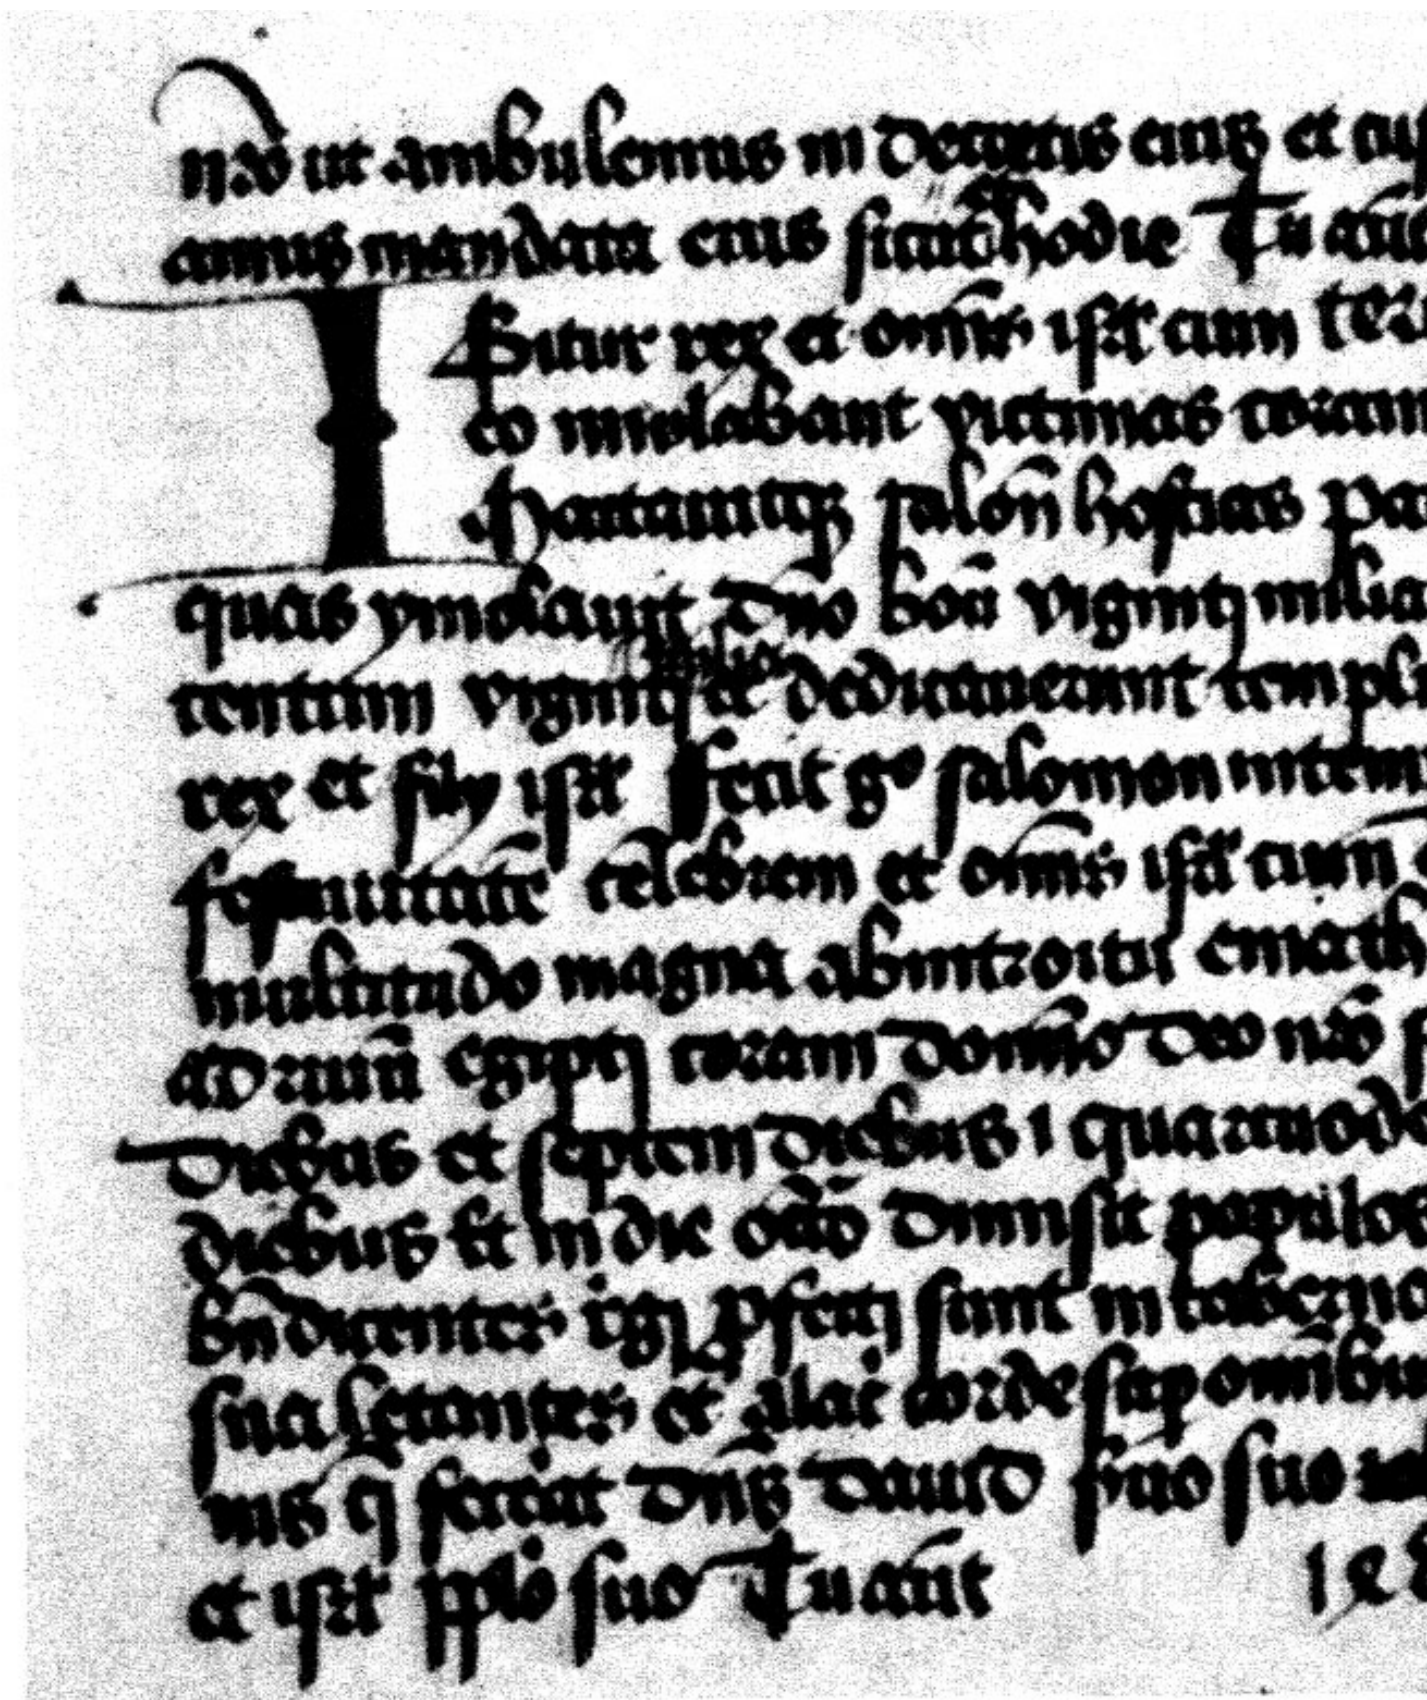 nr̄o ut ambulemus in decretis eius et cus
amus mandata eius sicut et hodie Tu aūt
Igitur rex et om̄is isrl̄ cum
eo immolabant victimas coram
Mactauitq; salom̄ hostias pa
quas ymolauit dn̄o boū viginti milia
centum viginti milia et dedicauerunt templ
rex et filij isrl̄ fecit gͦ salomon in tem
festiuitatē celebrem et om̄is isrl̄ cum
multitudo magna ab introitu emath
ad riuū egipti coram domīo deo nr̄o
diebus et septem diebus i quatuorde
diebus Et in die octͦ dimisit populos
bn̄dicentes regi ꝓfecti sunt in taberna
sua letantes et alac̄ corde suꝑ omību
nis q̄ fecerat dn̄s dauid s̓uo suo
et isrl̄ pplo suo Tu aūt